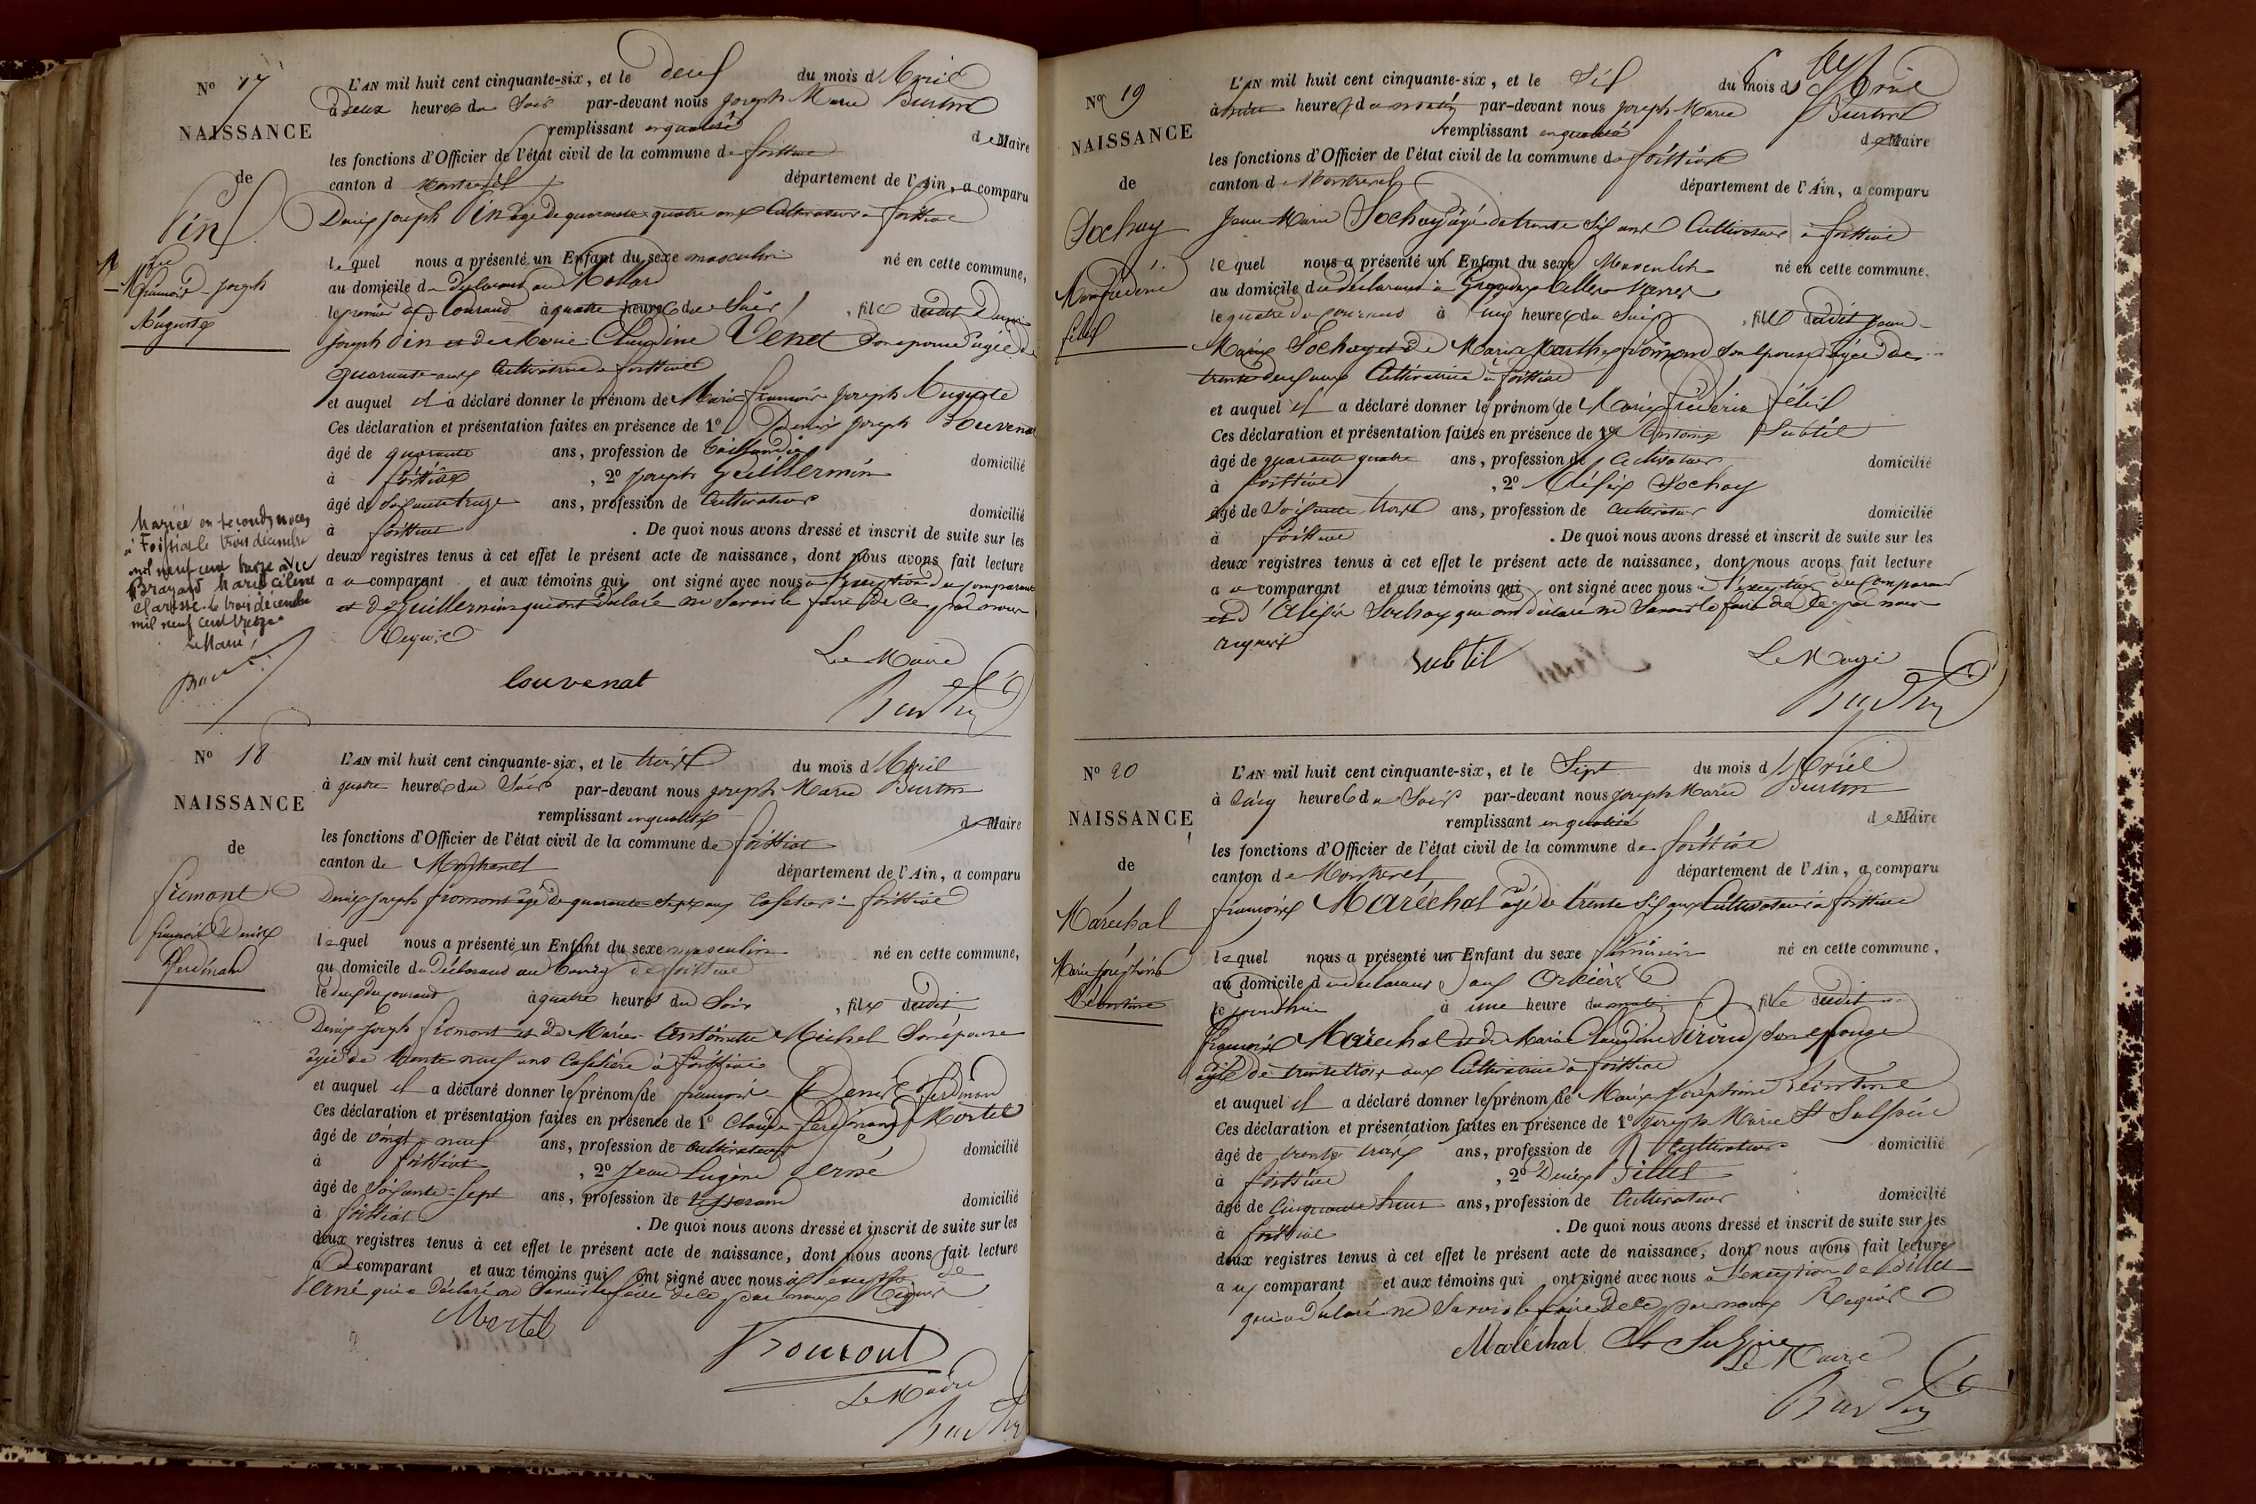 N° 17
NAISSANCE
de
Pin
Marie
françois joseph
Auguste
L'AN mil huit cent cinquante-six, et le deux du mois d'Avril
à deux heures du Soir par-devant nous joseph Marie Burtin
remplissant en qualité de Maire
les fonctions d'Officier de l'état civil de la commune de foissiat
canton d Montrevel département de l'Ain, a comparu
Denis joseph Pin âgé de quarante quatre ans Cultivateur à foissiat
lequel nous a présenté un Enfant du sexe masculin né en cette commune,
au domicile du déclarant au Mollard
le premier du Courant à quatre heures du Soir, fils dudit Denis
joseph Pin et de Marie Claudine Venet Son épouse âgée de
quarante ans Cultivatrice à foissiat
et auquel il a déclaré donner le prénom de Marie françois joseph Auguste
Ces déclaration et présentation faites en présence de 1° Denis joseph Louvenat
âgé de quarante ans, profession de domicilié
à foissiat, 2° joseph Guillermin
âgé de soixante treize ans, profession de Cultivateur domicilié
à foissiat. De quoi nous avons dressé et inscrit de suite sur les
deux registres tenus à cet effet le présent acte de naissance, dont nous avons fait lecture
a u comparant et aux témoins qui ont signé avec nous à l'Exception du comparant
et de Guillermin qui ont déclaré ne Savoir le faire de ce par nous
Requis
Louvenat
Le Maire
Burtin
Mariée en secondes noces
à Foissiat le trois décembre
mil neuf cent treize avec
Brayard Marie Céline
Clarisse. Le trois décembre
mil neuf cent treize
Le Maire,
N° 18
NAISSANCE
de
fromont
françois Denis
Ferdinand
L'AN mil huit cent cinquante-six, et le trois du mois d'Avril
à quatre heures du Soir par-devant nous joseph Marie Burtin
remplissant en qualité de Maire
les fonctions d'Officier de l'état civil de la commune de foissiat
canton de Montrevel département de l'Ain, a comparu
Denis joseph fromont âgé de quarante Sept ans Cafetier à foissiat
lequel nous a présenté un Enfant du sexe masculin né en cette commune,
au domicile du Déclarant au bourg de foissiat
le deux du courant à quatre heures du Soir, fils dudit
Denis joseph fromont et de Marie Antoinette Michel Son épouse
âgée de trente neuf ans Cafetière à foissiat
et auquel il a déclaré donner le prénom de françois Denis ferdinand
Ces déclaration et présentation faites en présence de 1° Claude ferdinand Mortel
âgé de vingt neuf ans, profession de Cultivateur domicilié
à foissiat, 2° Jean Eugène Perné
âgé de Soixante-Sept ans, profession de tisserand domicilié
à foissiat. De quoi nous avons dressé et inscrit de suite sur les
deux registres tenus à cet effet le présent acte de naissance, dont nous avons fait lecture
a u comparant et aux témoins qui ont signé avec nous à l'exception de
Perné qui a Déclaré ne Savoir le faire de ce par nous Requis
Mortel
fromont
Le Maire
Burtin
N° 19
NAISSANCE
de
Sochay
Marie frédéric
félix
L'AN mil huit cent cinquante-six, et le Six du mois d'Avril
à huit heures du matin par-devant nous joseph Marie Burtin
remplissant en qualité de Maire
les fonctions d'Officier de l'état civil de la commune de foissiat
canton d Montrevel département de l'Ain, a comparu
Jean Marie Sochay âgé de trente Six ans Cultivateur à foissiat
lequel nous a présenté un Enfant du sexe Masculin né en cette commune.
au domicile du déclarant à
le quatre du courant à cinq heures du Soir, fils dudit Jean
Marie Sochay et de Marie Marthe fromont Son épouse âgée de
trente deux ans Cultivatrice à foissiat
et auquel il a déclaré donner le prénom de Marie frédéric félix
Ces déclaration et présentation faites en présence de 1° Antoine Subtil
âgé de quarante quatre ans, profession de Cultivateur domicilié
à foissiat, 2° Aléxis Sochay
âgé de Soixante trois ans, profession de Cultivateur domicilié
à foissiat. De quoi nous avons dressé et inscrit de suite sur les
deux registres tenus à cet effet le présent acte de naissance, dont nous avons fait lecture
a u comparant et aux témoins qui ont signé avec nous à l'exception du Comparant
et d'Aléxis Sochay qui ont déclaré ne Savoir le faire de ce par nous
requis
Subtil
Le Maire
Burtin
N° 20
NAISSANCE
de
Maréchal
Marie joséphine
Léontine
L'AN mil huit cent cinquante-six, et le Sept du mois d'Avril
à cinq heures du Soir par-devant nous joseph Marie Burtin
remplissant en qualité de Maire
les fonctions d'Officier de l'état civil de la commune de foissiat
canton de Montrevel département de l'Ain, a comparu
françois Maréchal âgé de trente Six ans Cultivateur à foissiat
lequel nous a présenté un Enfant du sexe féminin né en cette commune,
au domicile du déclarant aux Orcières
le jourd'hui à une heure du matin fille dudit
françois Maréchal et de Marie Claudine Piroud Son épouse
âgée de trente trois ans Cultivatrice à foissiat
et auquel il a déclaré donner le prénom de Marie joséphine Léontine
Ces déclaration et présentation faites en présence de 1° joseph Marie St Sulpice
âgé de trente trois ans, profession de Cultivateur domicilié
à foissiat, 2° Denis Gillet
âgé de Cinquante huit ans, profession de Cultivateur domicilié
à foissiat. De quoi nous avons dressé et inscrit de suite sur les
deux registres tenus à cet effet le présent acte de naissance, dont nous avons fait lecture
a u comparant et aux témoins qui ont signé avec nous à l'exception de Gillet
qui a déclaré ne Savoir le faire De ce par nous Requis
Maréchal St Sulpice
Le Maire
Burtin